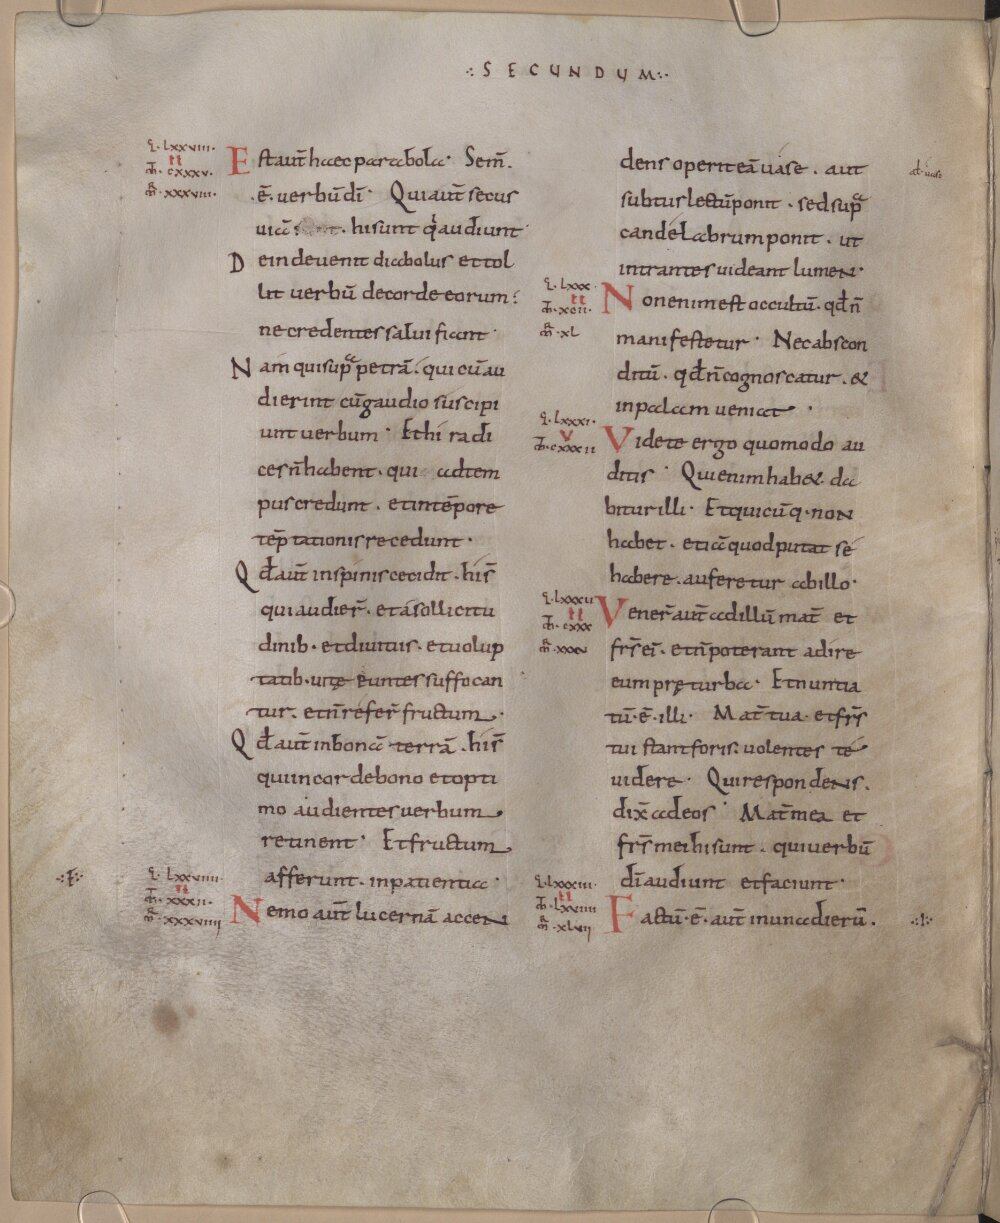 ·:SECUNDUM:·
L·LXXVIII·
II
M̄·CXXXV·
M̄R·XXXVIII·
Estaut̄haecparabola· Sem̄.
·ē·verbūdī· Quiaut̄secus
viā ·hisunt q̇audiunt
Deindevenit diabolus ettol
lit verbū decordeeorum:
necredentessalvifiant·
Nam quisup̄petrā: quicū au
dierint cūgaudio suscipi
untverbum· Ethi radi
cesn̄habent·qui adtem
puscredunt· etintēpore
tēptationisrecedunt·
Qd̄aut̄ inspiniscecidit·his̄
quiaudier̄·etasollicitu
dinib·etdivitiis·etvolup
tatib·vitę euntessuffocan
tur·etn̄refer̄ fructum·
Qd̄aut̄inbonā terrā·his̄
quiincordebono etopti
mo audientesverbum
retinent· Etfructum
afferunt·inpatientia·
L·LXXVIIII·
II
M̄·XXXII·
M̄R·XXXVIIII
Nemo aut̄ lucernā accen
dens operiteāvase· aut
subtuslectūponit·sedsup̄
candelabrumponit·ut
intrantesvideant lumen·
al·vase
L·LXXX·
II
M̄·XCII·
M̄R·XL
Nonenimest occultū·qd̄n̄
manifestetur· Necabscon
ditū·qd̄n̄cognoscatur·&
inpalam veniat·
L·LXXXI·
V
M̄·CXXXII
Videte ergo quomodo au
ditis· Quienimhab&·da
biturilli· Etquicūq·non
habet·etiāquodputat se
habere·auferetur abillo·
L·LXXXII
II
M̄·CXXX
Vener̄aut̄adillū mat̄ et
fr̄sei·etn̄poterant adire
eumpręturba· Etnuntia
tū·ē·illi· Mat̄tua·etfr̄s
tui stantforis·volentes te
videre· Quirespondens·
dix̄ adeos· Mat̄mea et
fr̄smeihisunt·quiverbū
dīaudiunt etfaciunt·
L·LXXXIII·
II
M̄·LXVIIII
M̄R·XLVII
Factū·ē·aut̄ inunadierū·